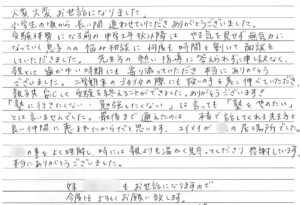 大変大変お世話になりました。
小学生の頃から長い間通わせていただきありがとうございました。
受験体勢になる前の中学2年秋以降は やる気を見せず無気力に
なっていく息子への悩み相談に何度も時間を割いて面談を
していただきました。先生方の熱い指導に答えられずに申し訳なく、
親として心細い時期にも寄り添っていただき本当にありがとう
ございました。三学期末のうざうざの際にも救いの手を差し伸べていただき、
親子共安心して受験を終えることができました。ありがとうございます!
「塾に行きたくない!勉強したくない」とは言っても「塾をやめたい」
とは言いませんでした。最後まで通えたのは 本音で話してくれる先生方と
良い仲間に恵まれたからだと思います。エイメイが の居場所でした。
の事をよく理解し、時には親よりも温かく見守ってくださり感謝しています。
本当にありがとうございました。
妹 もお世話になりますので
今後もよろしくお願い致します。